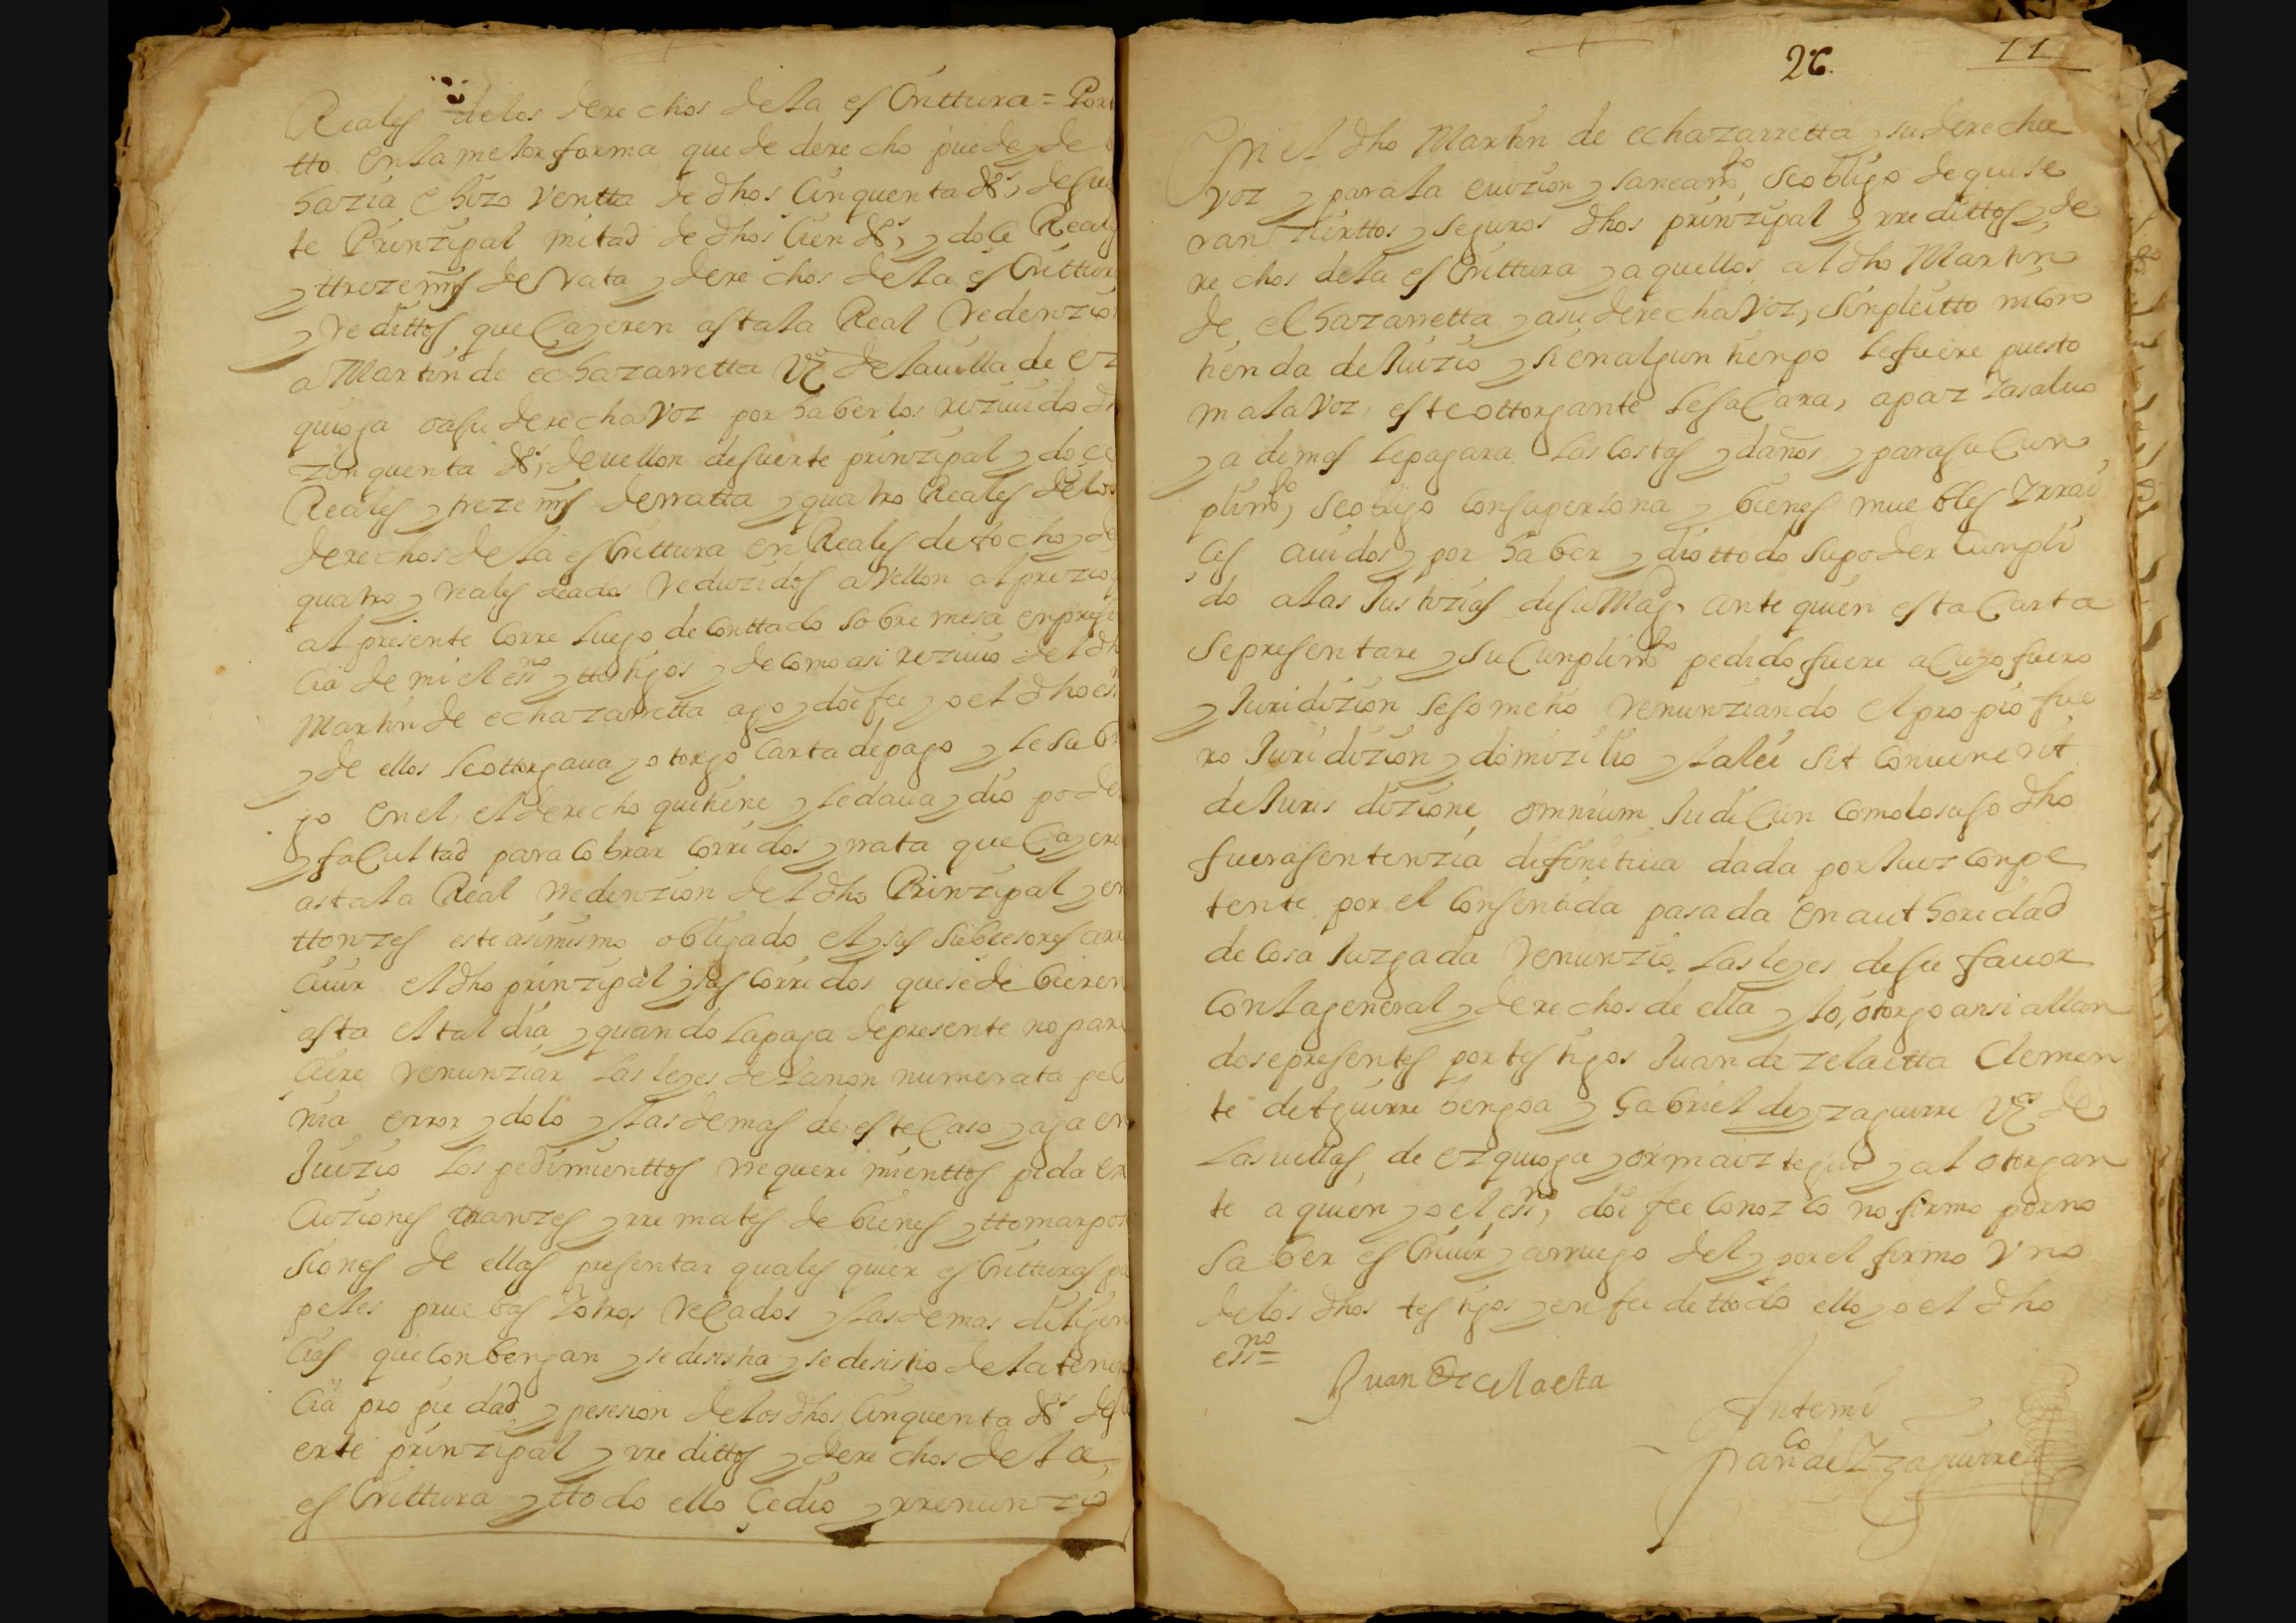 Reales de los derechos de la escrittura = Por
tto en la mejor forma que de derecho puede, y de
hazia e hizo ventta de dhos cinquenta ds, de sue
te prinzipal mitad de dhos cien ds, y doce Reales
y ttreze mrs de rata y derechos de la escrittura
y redittos que cayeren asta la Real redenzion
a Martin de echazarretta vº de la villa de ez
quioga o a su derecha voz por haberlos rezivido
zinquenta ds, de vellon de suerte prinzipal y doce
Reales y treze mrs de rratta y quatro Reales de los
derechos de la escrittura en Reales de a ocho y de
quatro y reales reduzidos a vellon al prezio
al presente corre luego de conttado sobre mesa en presen
cia de mi el essno y ttestigos y de como asi rezivio del dho
Martin de echazarretta ago y doi fee yo el dho essno
y de ellos le ottorgaua y otorgo carta de pago y le subro
go en el, el derecho que tiene y le daua y dio poder
y facultad para cobrar corridos y rrata que cayeren
asta la Real rredenzion del dho Prinzipal y en
ttonzes este asimismo obligado el y sus subcesores a rre
ciuir el dho prinzipal y sus corridos que se debieren
asta el tal dia y quando la paga de presente no pare
ciere renunziar las leyes de la non numerata pecu
nia error y dolo y las demas de este caso y aga en
Juizio los pedimienttos rrequerimienttos pida exe
cuziones tranzes y rremates de bienes y ttomar pose
siones de ellas presentar quales quier escritturas pa
peles pruebas y otros recados y las demas diligen
cias que conbengan y se desistia y se desistio de la tenen
cia propiedad y posesion de los dhos cinquenta ds de su
erte prinzipal y rredittos y derechos de la
escrittura y ttodo ello cedio y rrenunzio
26. 11
En el dho Martin de echazarretta y su derecha
voz y para la euizion y saneamto se obligo de que se
ran zierttos y seguros dhos prinzipal y rredittos y de
rechos de la escrittura y aquellos al dho Martin
de echazarretta y a su derecha voz, sin pleitto ni con
tienda de Juizio y si en algun tienpo le fuere puesto
mala voz, este ottorgante le sacara, a paz y a saluo
y a demas le pagara las costas y daños y para su cun
plimto, se obligo con su persona y bienes muebles y rrai
ces auidos y por haber y dio ttodo su poder cunpli
do a las Justizias de su Magd, ante quien esta carta
se presentare y su cunplimto pedido fuere a cuyo fuero
y Juridizion se sometio renunziando el propio fue
ro Juridizion y domizilio y la lei sit convenerit
de Juris dizione omnium Judicun como lo suso dho
fuera sentenzia difinitiua dada por Juez conpe
tente por el consentida pasada en authoridad
de cosa Juzgada renunzio las leyes de su fauor
con la general y derechos de ella y lo, otorgo ansi allan
dose presentes por testigos Juan de zelaetta Clemen
te de Aguirre bengoa y Gabriel de yzaguirre vºs de
las villas de ezquioga y ormaiztegui y al otorgan
te a quien yo el essno, doi fee conozco no firmo por no
saber escriuir y a rruego del y por el firmo vno
de los dhos testigos y en fee de ttodo ello yo el dho
essno=
Juan de celaeta
Ante mi
Franco de Yzaguirre